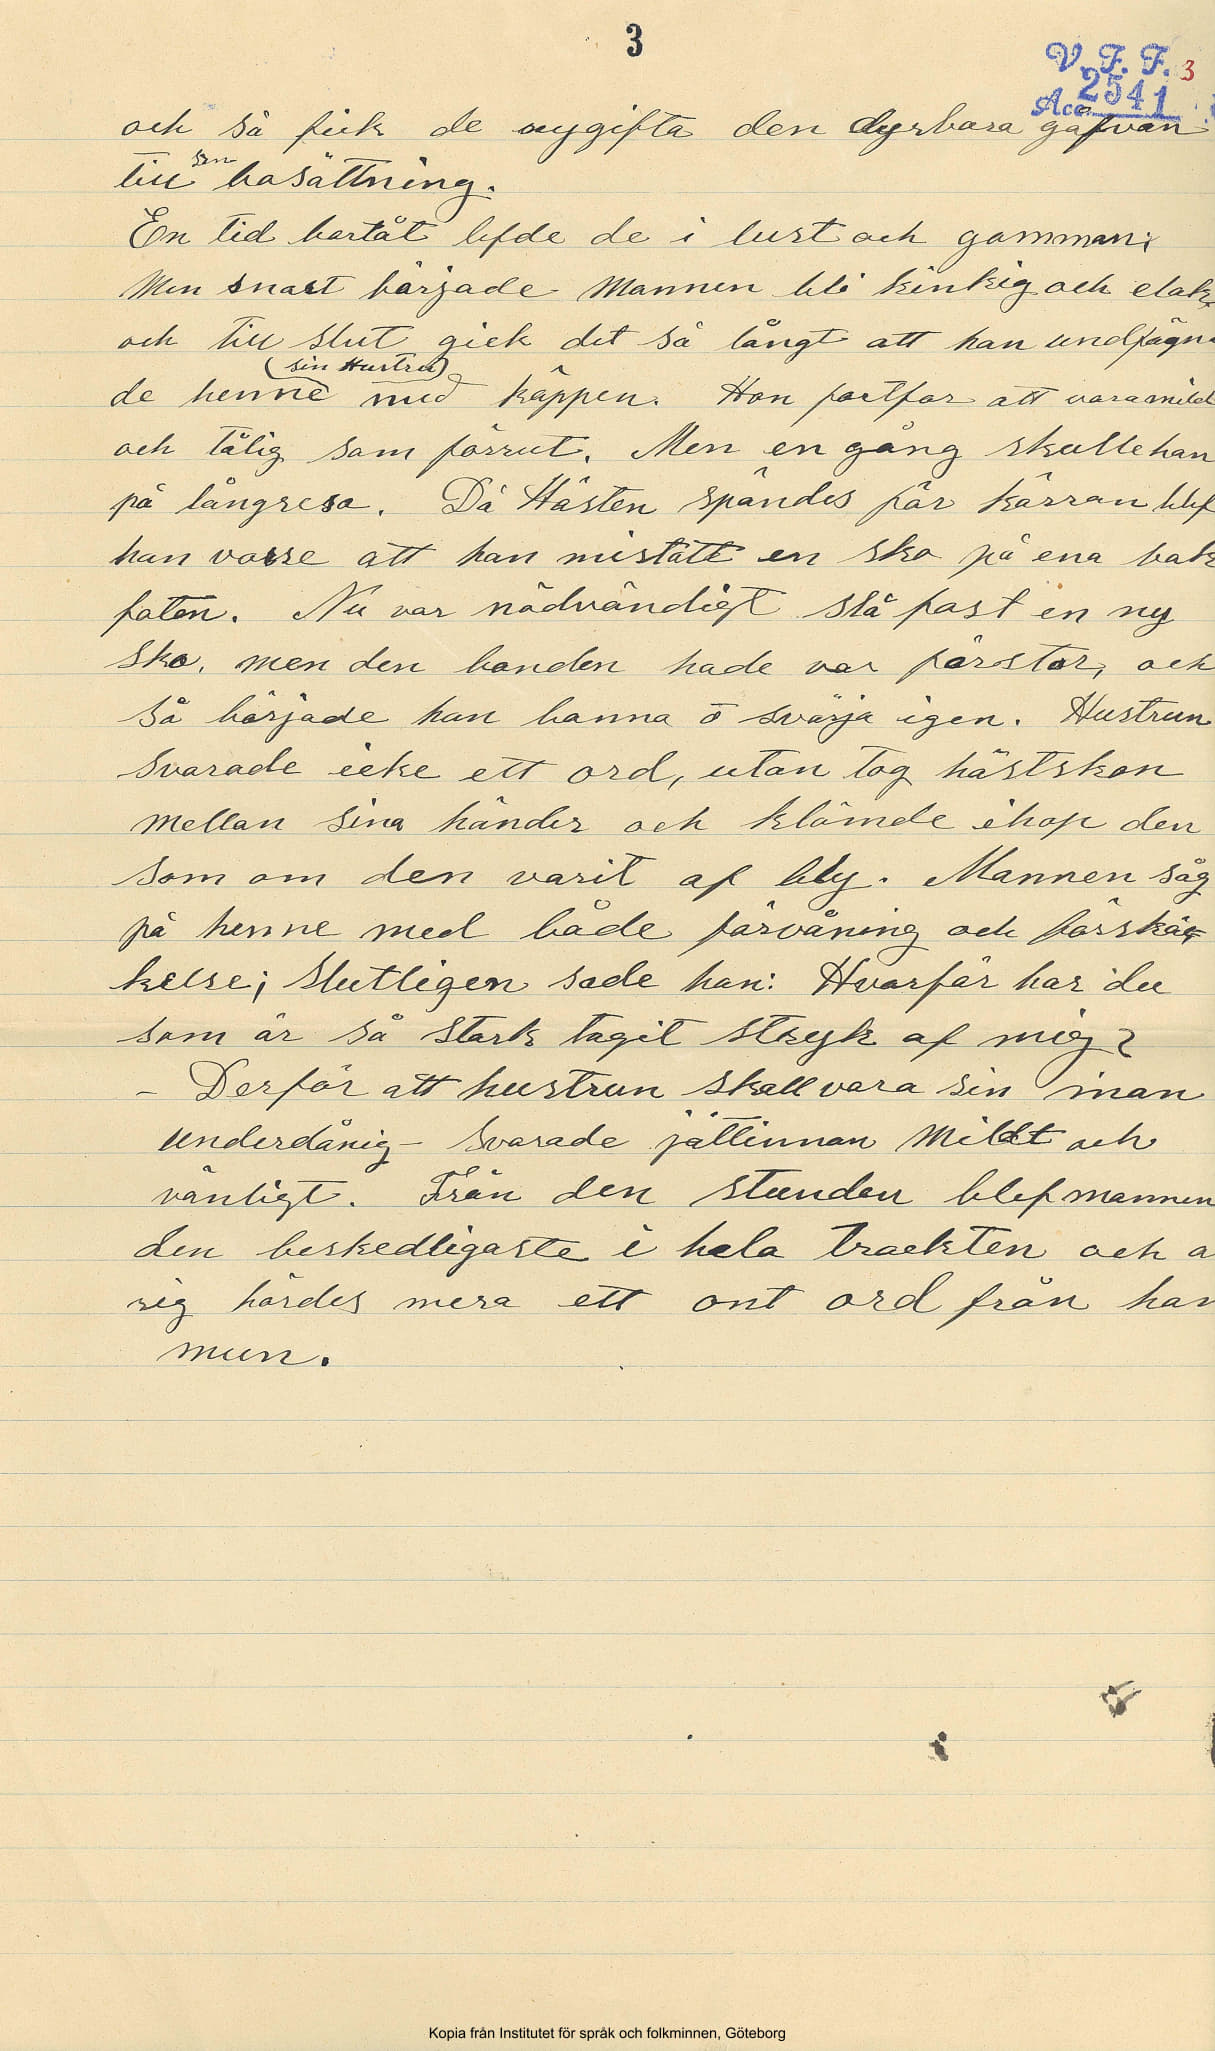 3
V. F. F. 3
Acc. 2541
och så fick de nygifta den dyrbara gåfvan
sin
till bosättning.
En tid bortåt lefde de i lust och gamman;
Men snart började mannen bli kinkig och elak,
och till slut gick det så långt att han undfägna
(sin Hustru)
de henne med käppen. Hon fortfor att vara mild
och tålig som förrut. Men en gång skulle han
på långresa. Då Hästen spändes för kärran blef
han varse att han mistatt en sko på ena bak
foten. Nu var nödvändigt slå fast en ny
sko, men den bonden hade var förstor, och
så började han banna o svärja igen. Hustrun
svarade icke ett ord, utan tog hästskon
mellan sina händer och klämde ihop den
som om den varit af bly. Mannen såg
på henne med både förvåning och förskräc
kelse; slutligen sade han: Hvarför har du
som är så stark tagit stryk af mig?
- Derför att hustrun skall vara sin man
underdånig - svarade jättinnan mildt och
vänligt. Från den stunden blef mannen
den beskedligaste i hela trackten och a
rig hördes mera ett ont ord från han
mun.
Kopia från Institutet för språk och folkminnen, Göteborg